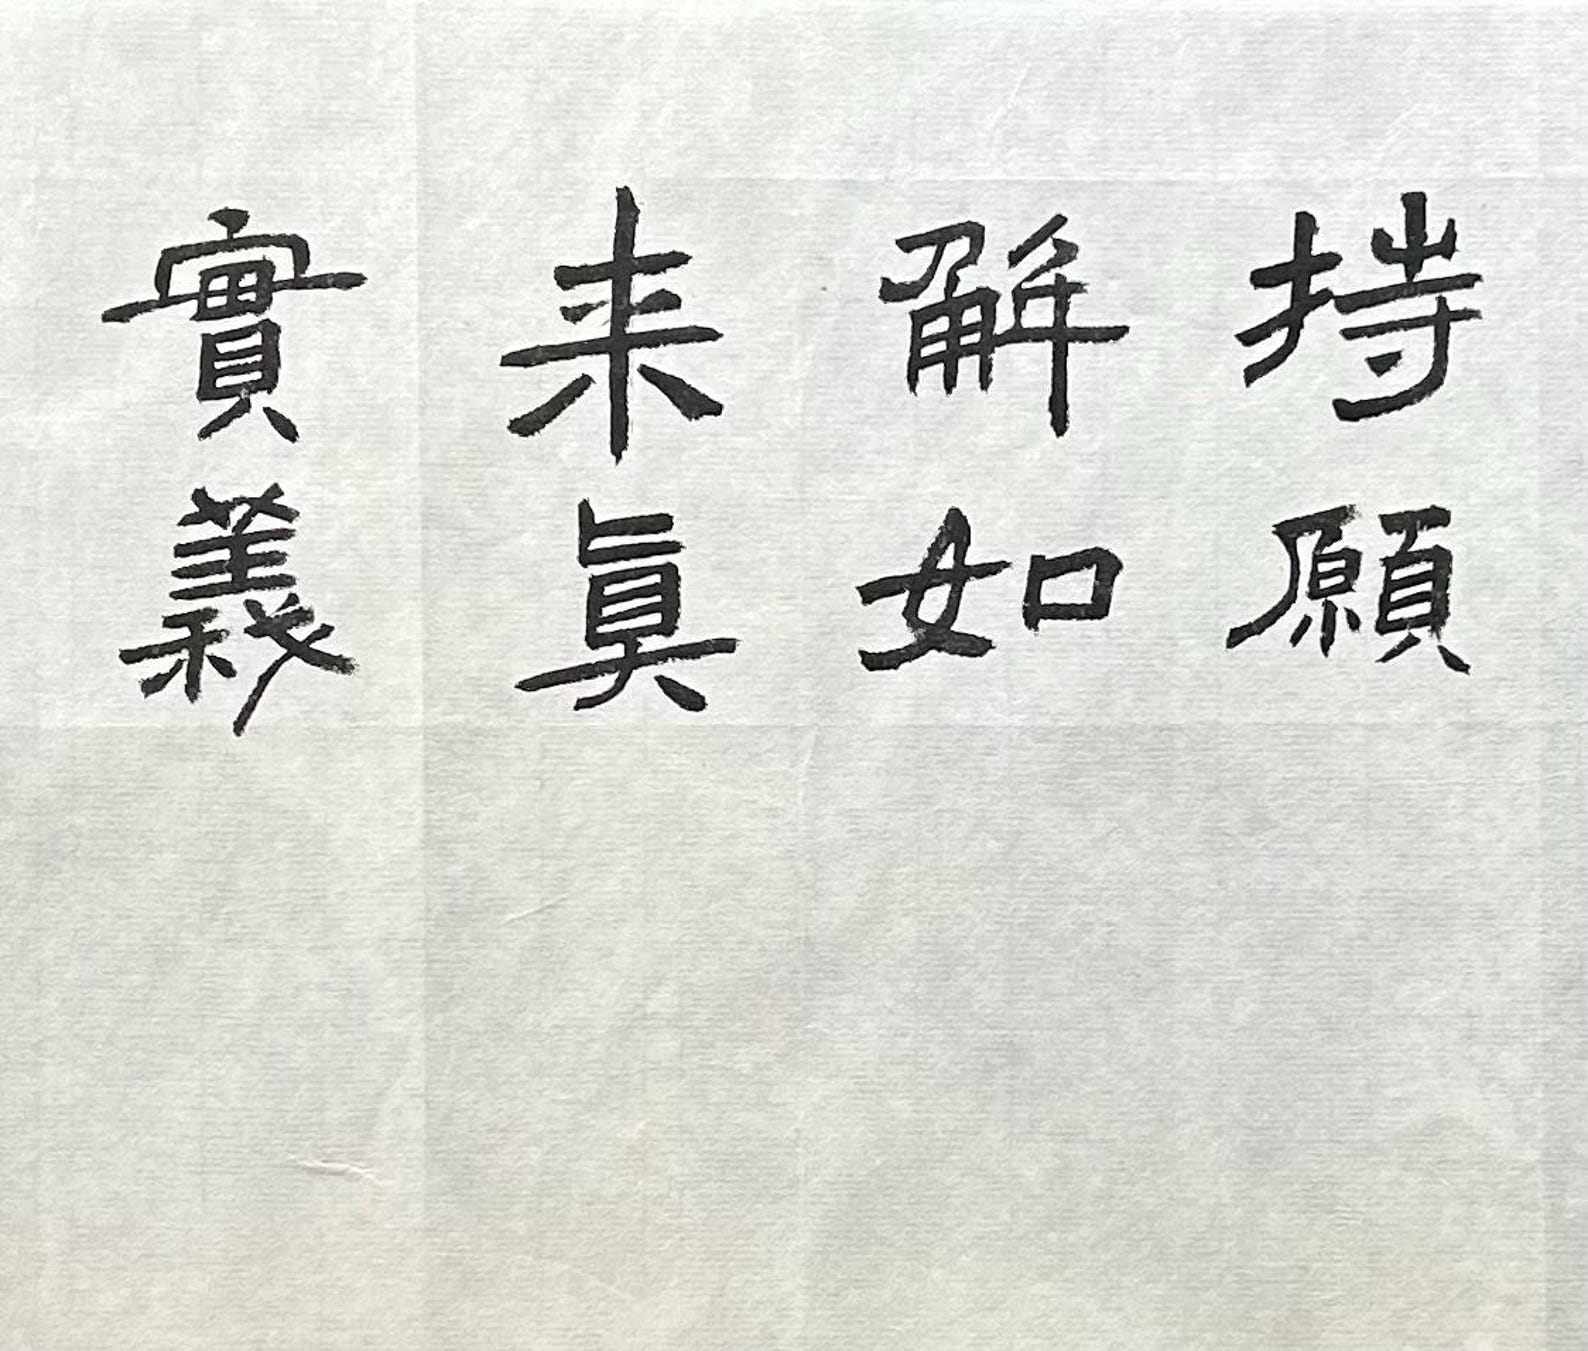 持願
解如
来眞
實義